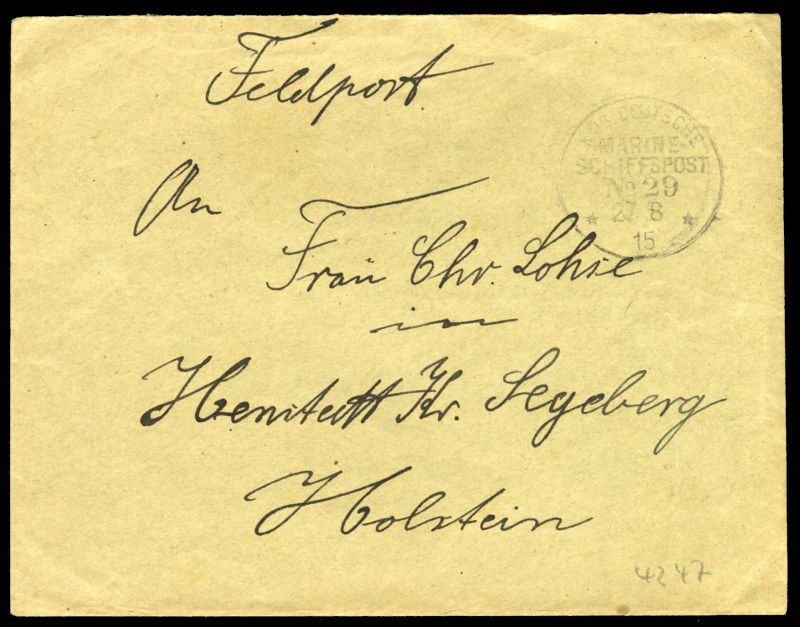 Feldpost
KÖN. DEUTSCHE
MARINE-
SCHIFFSPOST
No 29
27 8
15
An
Frau Chr. Lohse
in
Henstedt Kr. Segeberg
Holstein
4247